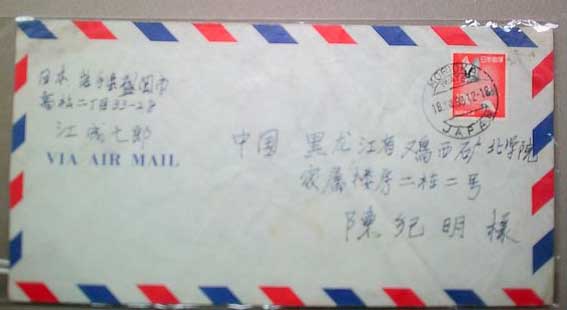 日本 岩手県盛岡市
高松二丁目33-28
七郎
VIA AIR MAIL
日本郵便
MORIOKA
JAPAN
中国 黑龙江省鸡西矿业学院
家属楼房二栋二号
陳紀明様